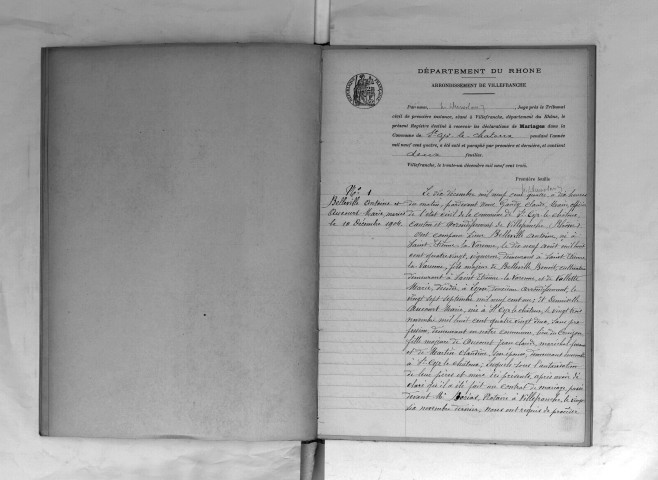 DÉPARTEMENT DU RHONE
ARRONDISSEMENT DE VILLEFRANCHE
Par nous, Juge près le Tribunal
civil de première instance, séant à Villefranche, département du Rhône, le
présent Registre destiné à recevoir les déclarations de Mariages dans la
Commune de St Cyr-le-Chatoux pendant l'année
mil neuf cent quatre, a été coté et paraphé par première et dernière, et contient
deux feuilles.
Villefranche, le trente-un décembre mil neuf cent trois.
Première feuille
No. 1
Belleville Antoine et
Aucourt Marie,
le 10 Décembre 1904
Le dix décembre mil neuf cent quatre, à dix heures
du matin, pardevant nous Claude, Maire, officier
de l'état civil de la commune de St Cyr le chatoux,
canton et arrondissement de Villefranche, Rhône,
ont comparu Sieur Belleville Antoine, né à
Saint-Etienne-la-Varenne, le dix neuf août mil huit
cent quatre vingt, vigneron demeurant à Saint-Etienne
la Varenne, fils majeur de Belleville Benoit, cultivateur
demeurant à Saint-Etienne-la-Varenne, et de
Marie, décédée à Lyon, deuxième arrondissement, le
vingt sept septembre mil neuf cent un; Et Demoiselle
Aucourt Marie, née à St Cyr le chatoux, le vingt trois
novembre mil huit cent quatre vingt deux, sans pro-
fession, demeurant en notre commune,
fille majeure de Aucourt Jean Claude, maréchal
et de Martin Claudine, son épouse, demeurant ensemble
à St Cyr le chatoux; lesquels sous l'autorisation
de leur pères et mère ici présents, après avoir dé-
claré qu'il a été fait un contrat de mariage passé
devant Me Notaire à Villefranche, le vingt
six novembre dernier, nous ont requis de procéder